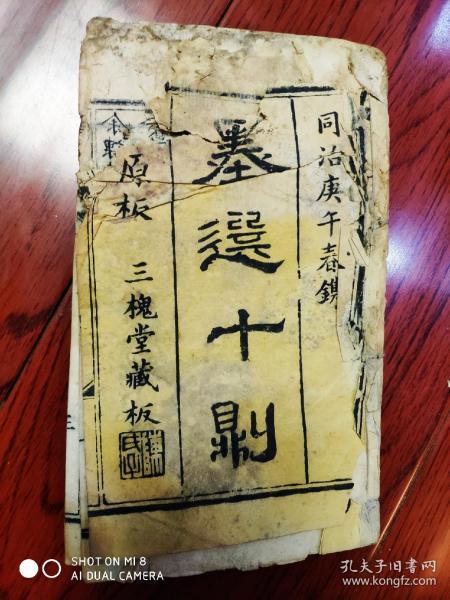 同治庚午春鐫
墨選十則
原板 三槐堂藏板
SHOT ON MI 8
AI DUAL CAMERA
孔夫子旧书网
www.kongfz.com